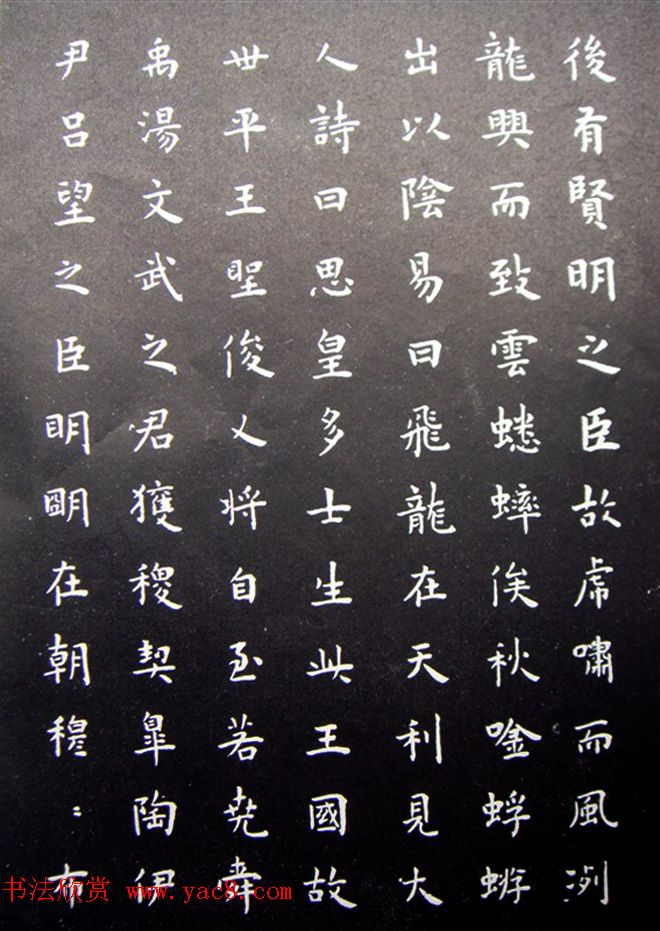 後有賢明之臣故虎嘯而風冽
龍興而致雲蟋蟀俟秋唫蜉蝣
出以陰易曰飛龍在天利見大
人詩曰思皇多士生此王國故
世平王聖俊乂将自至若堯舜
禹湯文武之君獲稷契皐陶伊
尹呂望之臣明明在朝穆〻布
书法欣赏 www.yac8.com